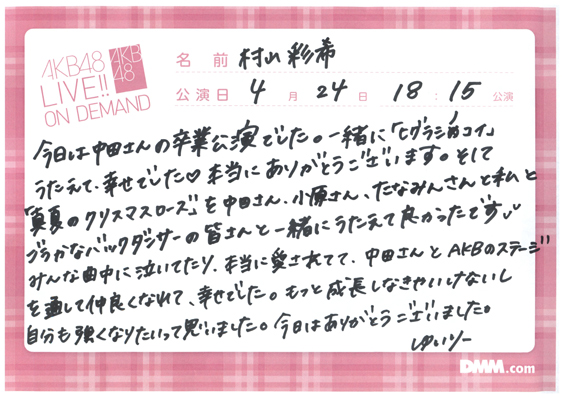 AKB48
LIVE!!
ON DEMAND
AKB
48
名 前 村山 彩希
公演日 4 月 24 日 18 : 15 公演
今日は中田さんの卒業公演でした。一緒に「ヒグラシノコイ」
うたえて、幸せでした♡ 本当にありがとうございます。そして
「真夏のクリスマスローズ」を中田さん、小原さん、たなみんさんと私と
ゴウカなバックダンサーの皆さんと一緒にうたえて良かったです
みんな曲中に泣いてたり、本当に愛されてて、中田さんとAKBのステージ
を通して仲良くなれて、幸せでした。もっと成長しなきゃいけないし
自分も強くなりたいって思いました。今日はありがとうございました。
ゆいりー
DMM.com